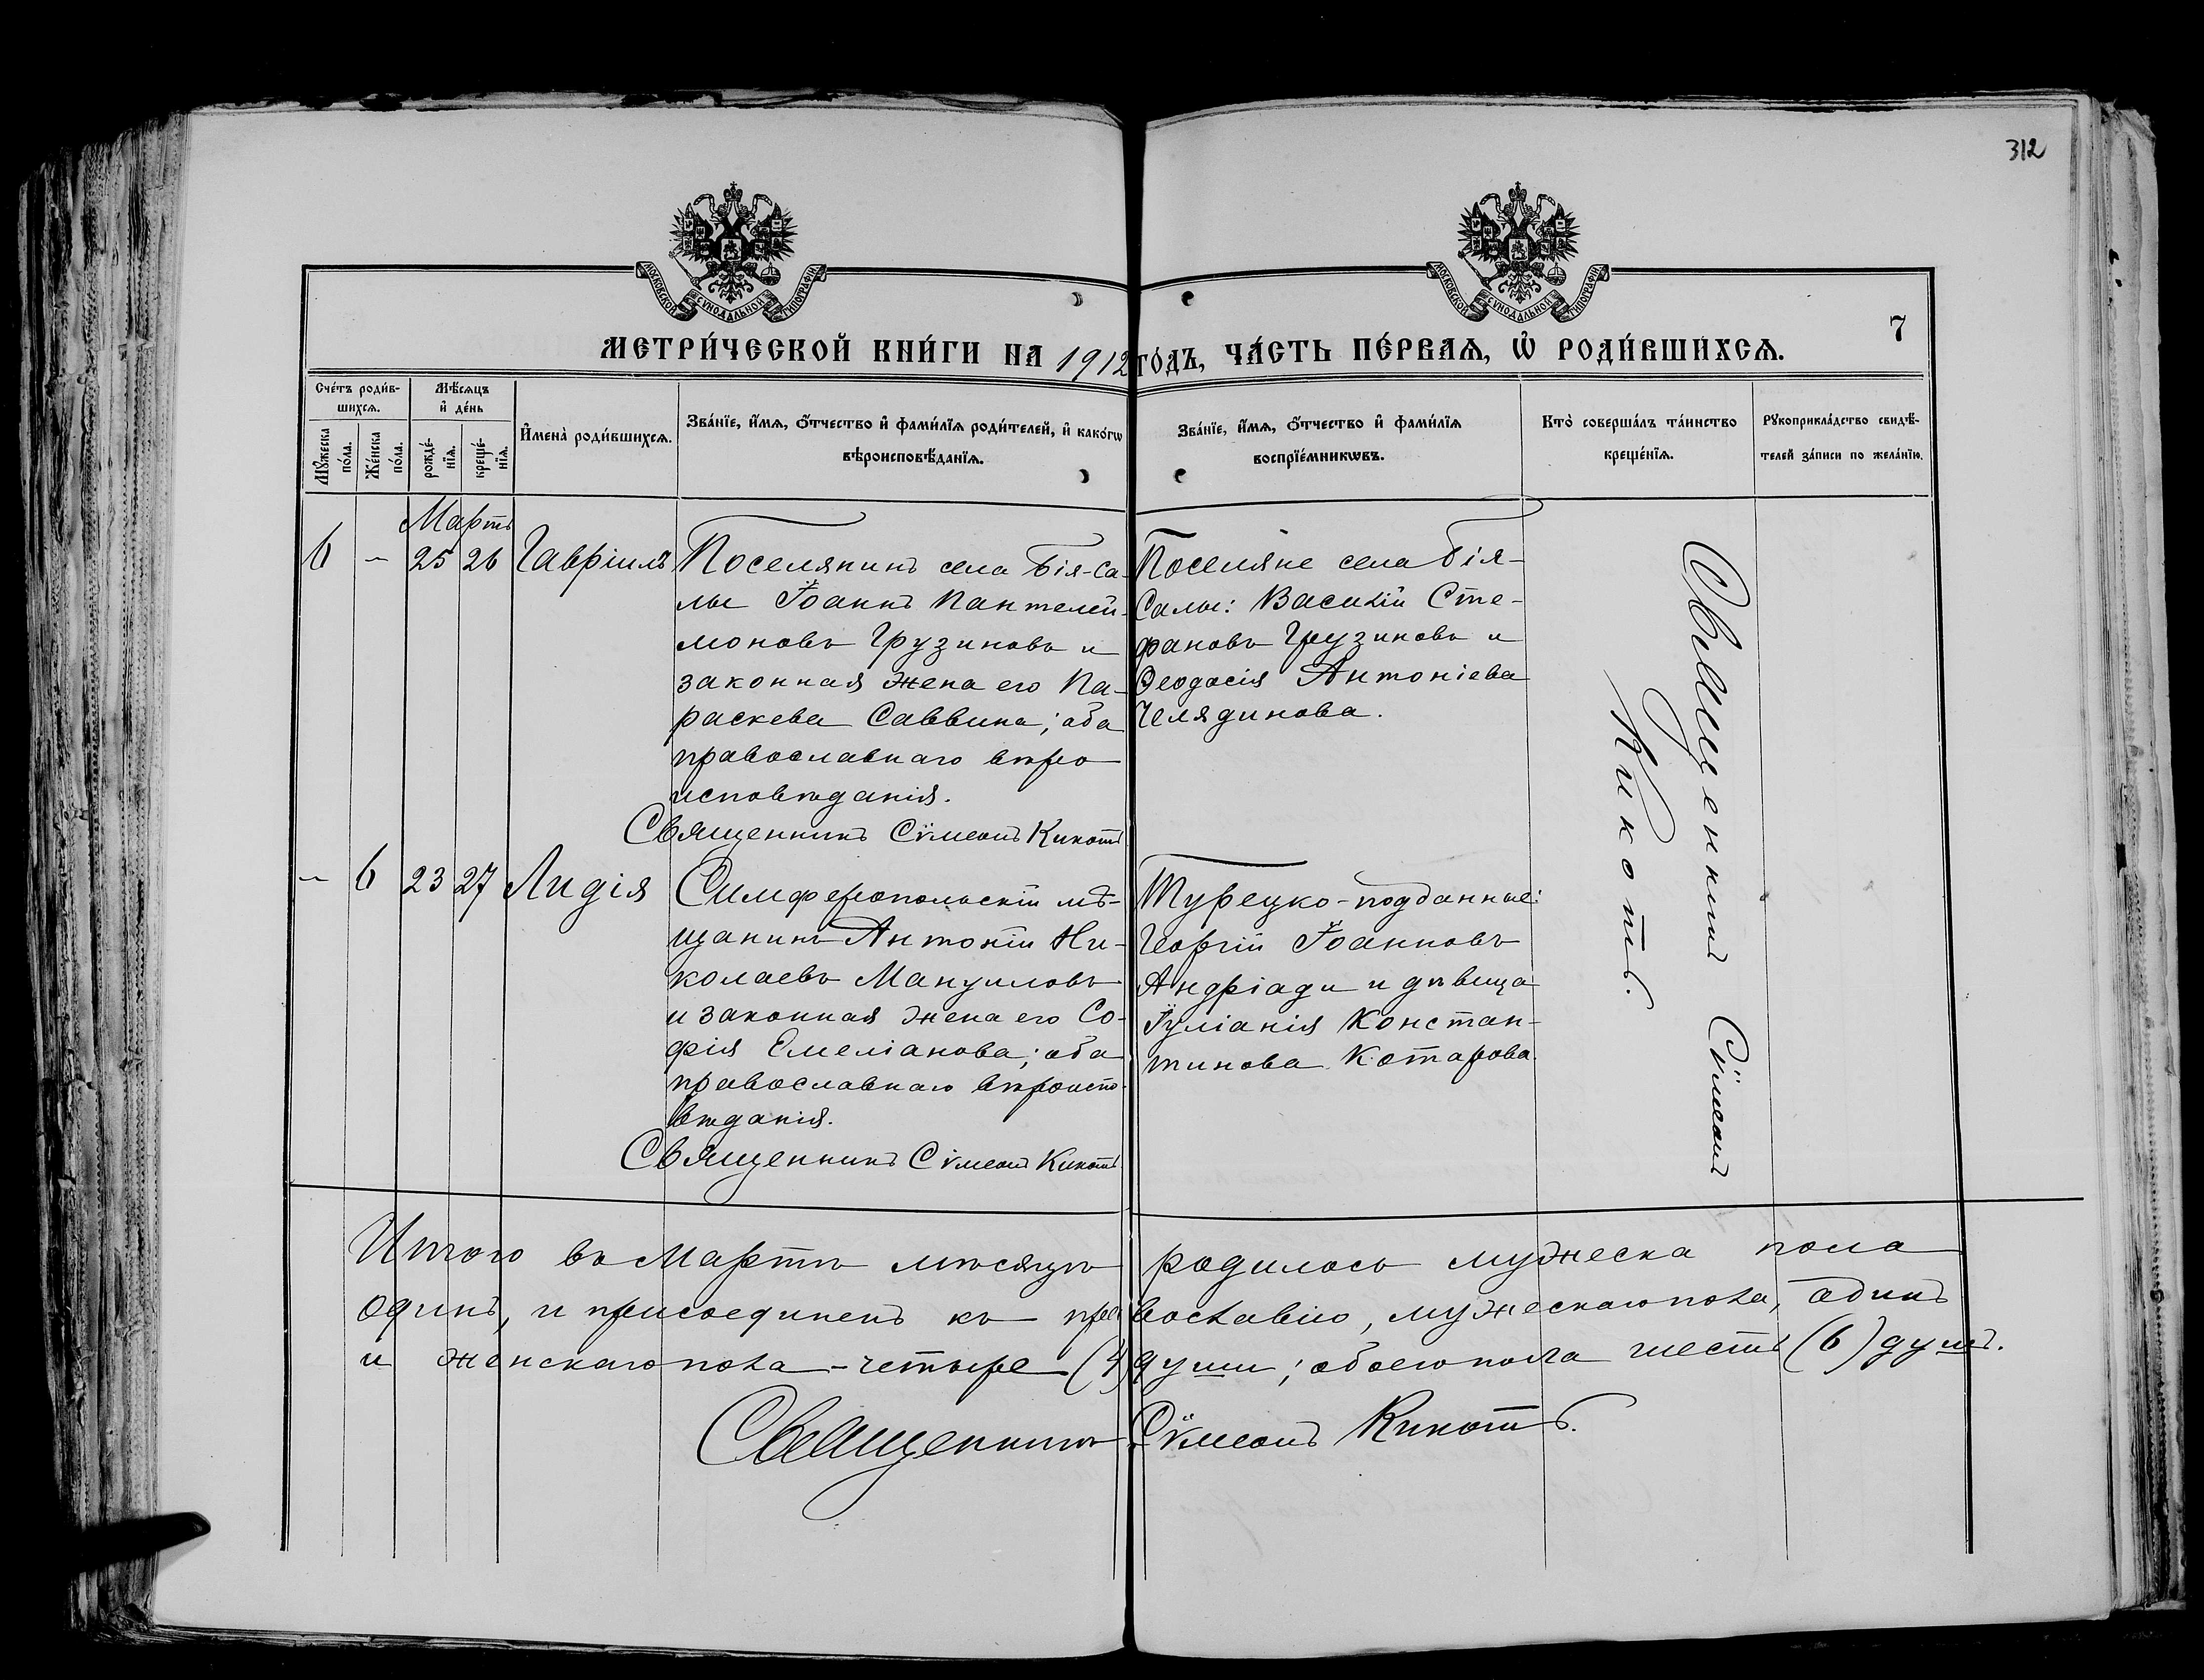 312
МОСКОВСКОЙ СѴНОДАЛЬНОЙ ТИПОГРАФІИ
МОСКОВСКОЙ СѴНОДАЛЬНОЙ ТИПОГРАФІИ
7
МЕТРИ́ЧЕСКОЙ КНИ́ГИ НА 1912 ГО́ДЪ, ЧА́СТЬ ПЕ́РВАѦ, Ѡ҆ РОДИ́ВШИХСѦ.
Сче́тъ роди́в-
шихсѧ.
Мꙋ́жеска по́ла.
Же́нска по́ла.
Мѣ́сѧцъ
и҆ де́нь
рожде́-
нїѧ.
креще́-
нїѧ.
И҆мена̀ роди́вшихсѧ.
Зва́нїе, и҆́мѧ, ѻ҆́тчество и҆ фами́лїѧ роди́телей, и҆ како́гѡ
вѣроисповѣ́данїѧ.
Зва́нїе, и҆́мѧ, ѻ҆́тчество и҆ фами́лїѧ
воспрїе́мникѡвъ.
Кто̀ соверша́лъ та́инство
креще́нїѧ.
Рꙋкоприкла́дство свидѣ́-
телей за́писи по жела́нїю.
Мартъ
6 – 25 26 Гавріилъ
Поселянинъ села Бія-Са-
лы Іоаннъ Пантелей-
моновъ Грузиновъ и
законная жена его Па-
раскева Саввина; оба
православнаго вѣро
исповѣданія.
Священникъ Сѵмеонъ Кикоть
Поселяне села Бія-
Салы: Василій Сте-
фановъ Грузиновъ и
Ѳеодосія Антоніева
Челядинова.
Священникъ Сѵмеонъ
Кикоть.
– 6 23 27 Лидія
Симферопольскій мѣ-
щанинъ Антоній Ни-
колаевъ Мануиловъ
и законная жена его Со-
фія Емеліанова; оба
православнаго вѣроиспо-
вѣданія.
Священникъ Сѵмеонъ Кикоть
Турецко-подданные:
Георгій Іоанновъ
Андріади и дѣвица
Іуліанія Констан-
тинова Котарова.
Итого въ Мартѣ мѣсяцѣ родилось мужеска пола
одинъ, и присоединенъ къ православію, мужескаго пола, одинъ
и женскаго пола - четыре (4) души; обоего пола шесть (6) душъ.
Священникъ Сѵмеонъ Кикоть.